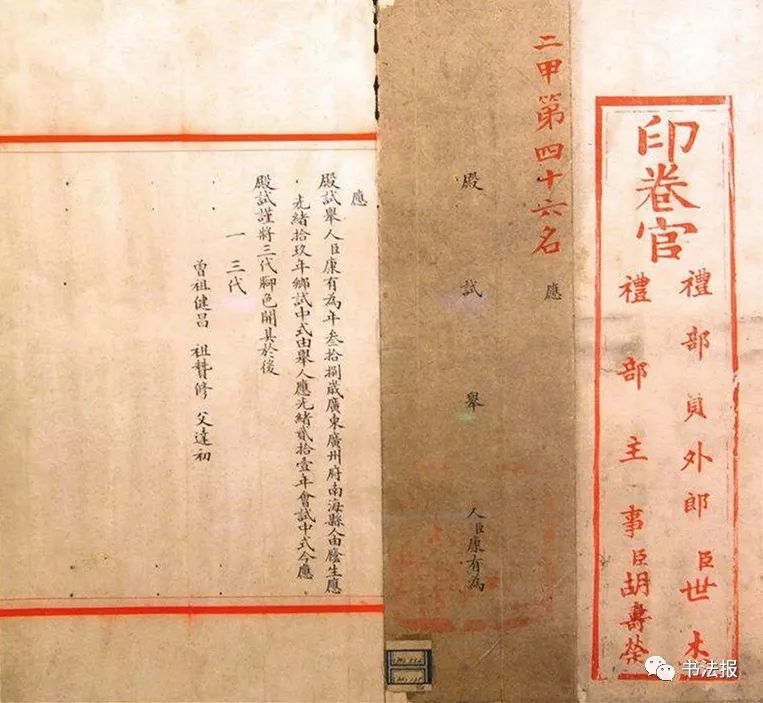 印卷官
禮部員外郎臣世木
禮部主事臣胡壽榮
二甲第四十六名
應
殿試舉人臣康有為
應
殿試舉人臣康有為年叁拾捌歲廣東廣州府南海縣人由廕生應
光緒拾玖年鄉試中式由舉人應光緒貳拾壹年會試中式今應
殿試謹將三代腳色開具於後
一三代
曾祖健昌 祖贊修 父達初
书法报